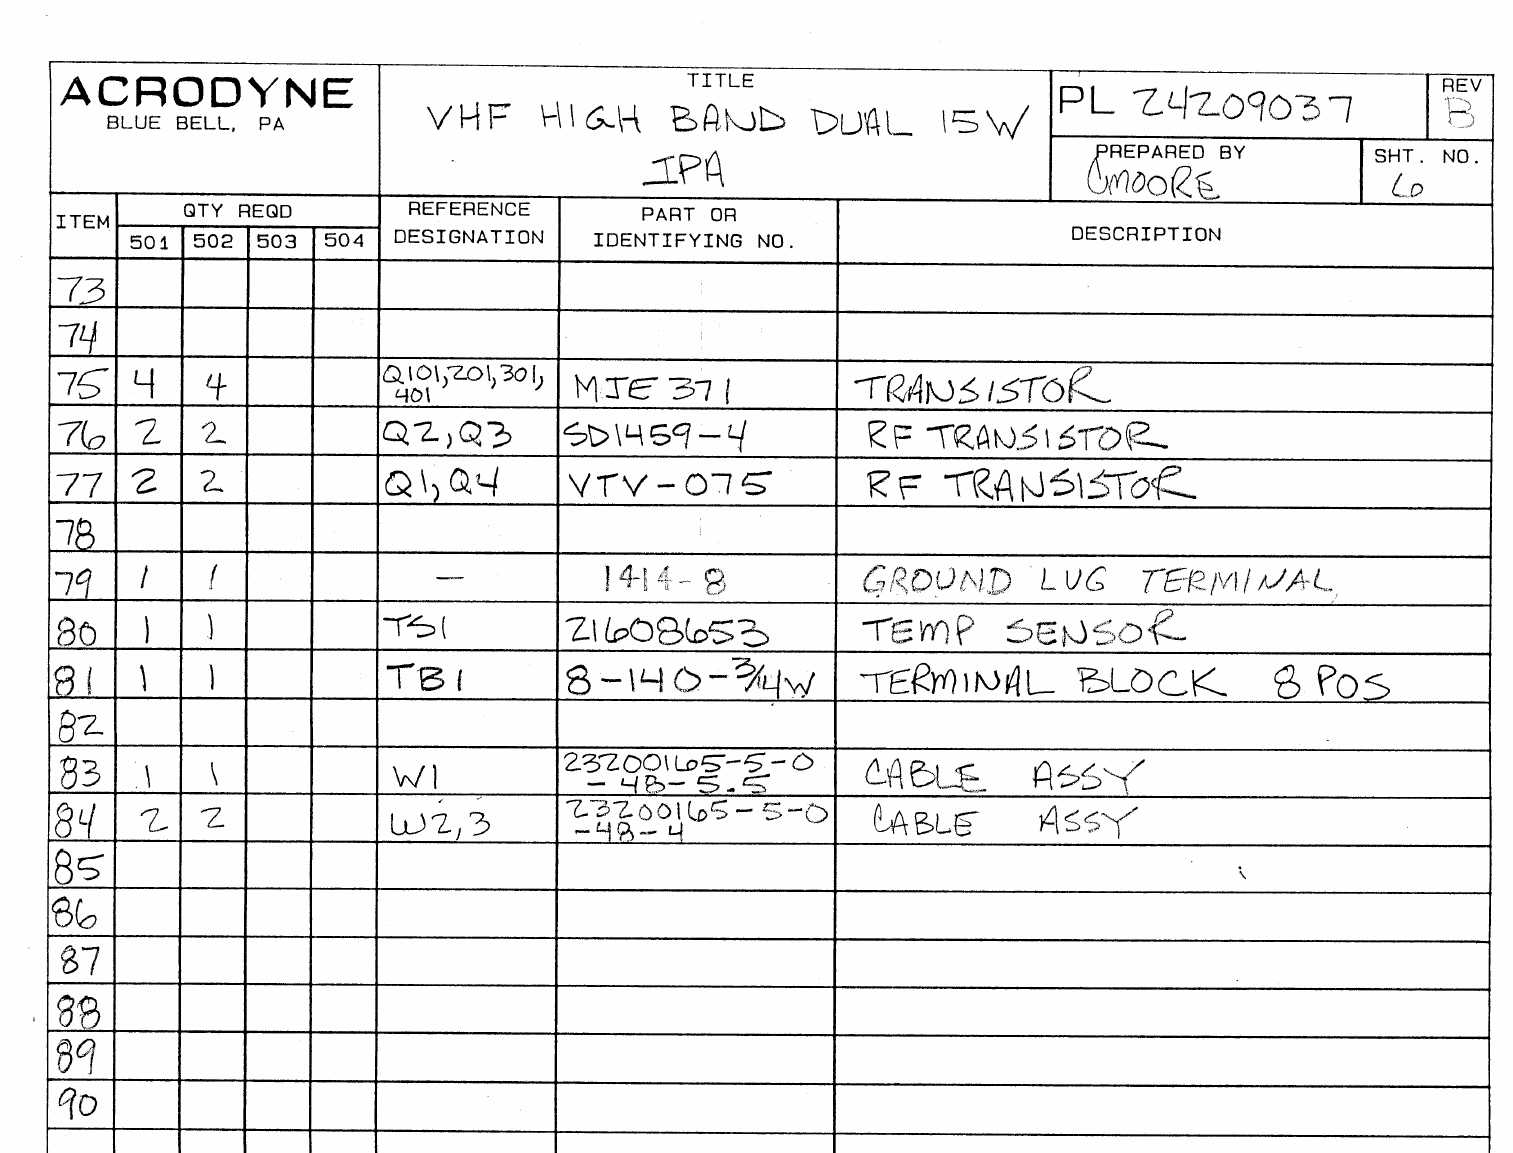 ACRODYNE
BLUE BELL, PA
TITLE
VHF HIGH BAND DUAL 15W
IPA
PL 24209037
REV
B
PREPARED BY
CMOORE
SHT. NO.
6
ITEM
QTY REQD
501 502 503 504
REFERENCE
DESIGNATION
PART OR
IDENTIFYING NO.
DESCRIPTION
73
74
75 4 4 Q101,201,301, MJE 371 TRANSISTOR
401
76 2 2 Q2,Q3 SD1459-4 RF TRANSISTOR
77 2 2 Q1,Q4 VTV-075 RF TRANSISTOR
78
79 1 1 — 1414-8 GROUND LUG TERMINAL
80 1 1 TS1 21608653 TEMP SENSOR
81 1 1 TB1 8-140-3/4W TERMINAL BLOCK 8 POS
82
83 1 1 W1 23200165-5-0 CABLE ASSY
-48-5.5
84 2 2 W2,3 23200165-5-0 CABLE ASSY
-48-4
85
86
87
88
89
90